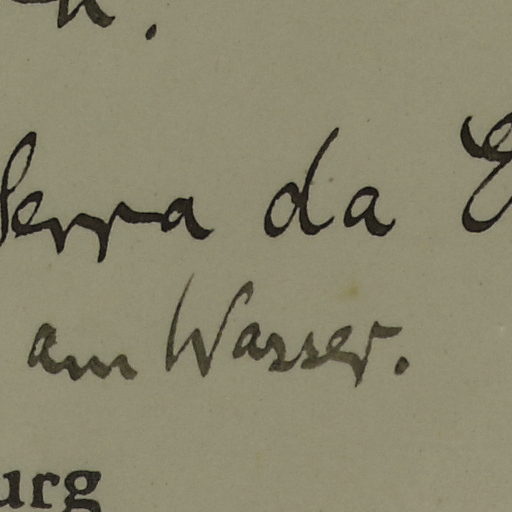 Serra da E
am Wasser.
urg